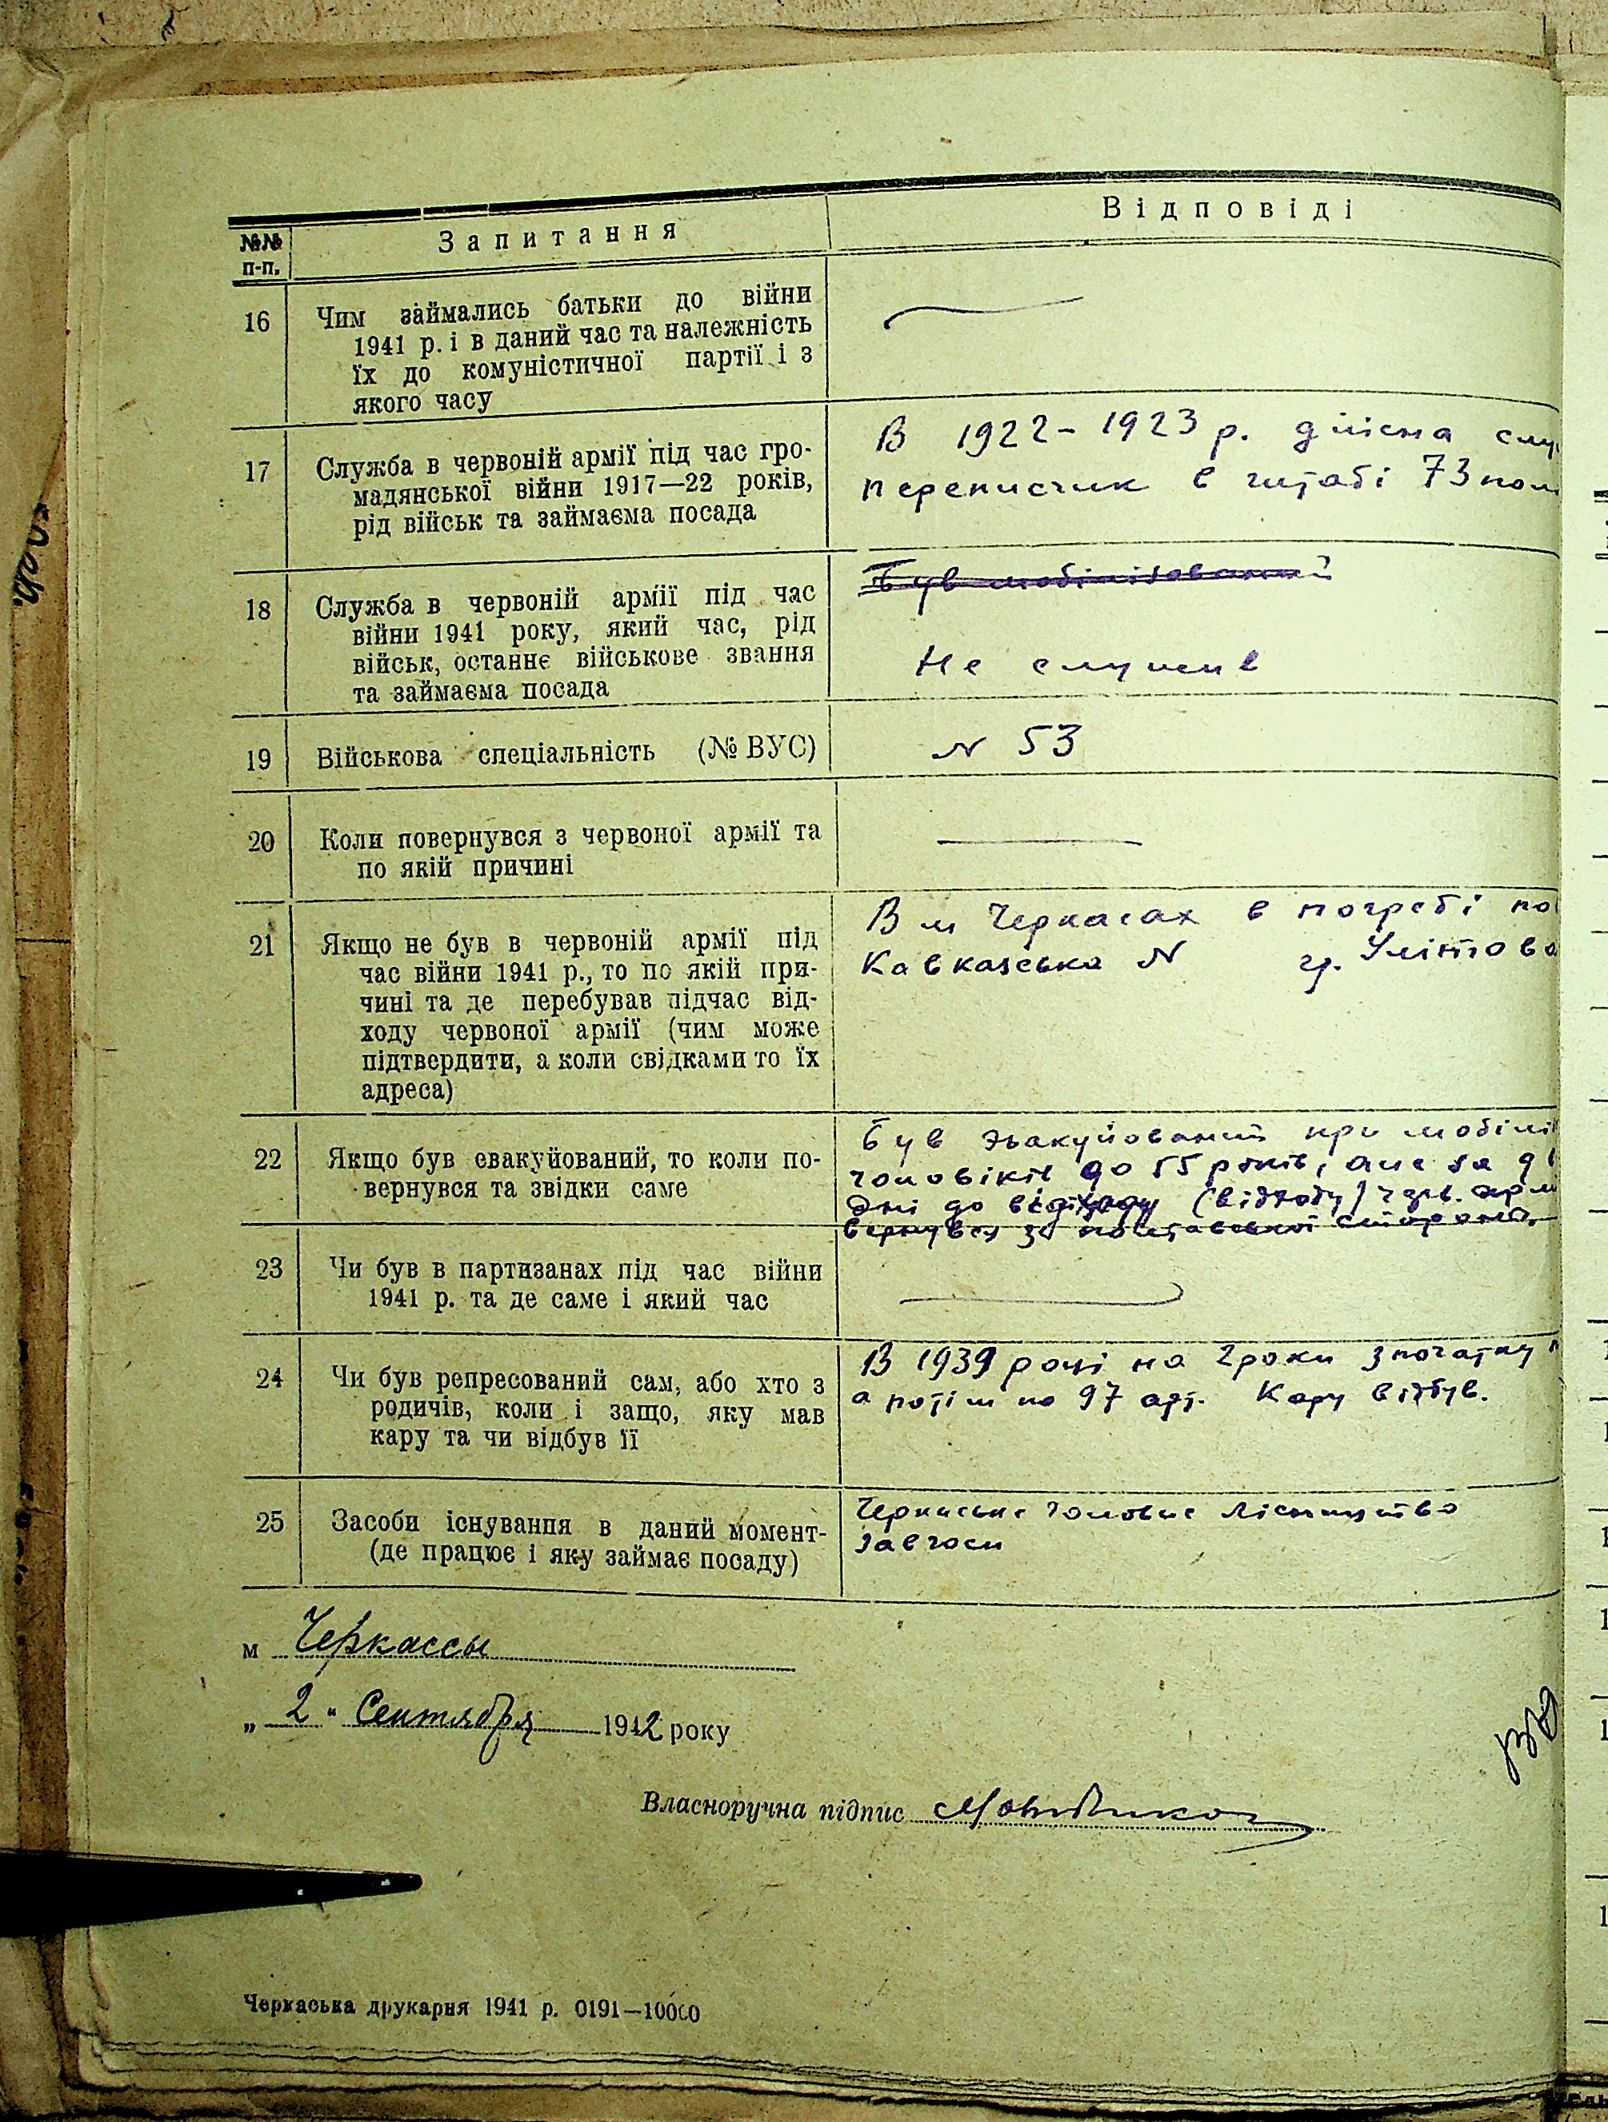 №№ п-п.
Запитання
Відповіді
16
Чим займались батьки до війни
1941 р. і в даний час та належність
їх до комуністичної партії і з
якого часу
17
Служба в червоній армії під час гро-
мадянської війни 1917—22 років,
рід військ та займаєма посада
В 1922-1923 р. дійсна слу
переписчик в штабі 73 пол
18
Служба в червоній армії під час
війни 1941 року, який час, рід
військ, останнє військове звання
та займаєма посада
Був мобілізований
Не служив
19
Військова спеціальність (№ ВУС)
N 53
20
Коли повернувся з червоної армії та
по якій причині
21
Якщо не був в червоній армії під
час війни 1941 р., то по якій при-
чині та де перебував підчас від-
ходу червоної армії (чим може
підтвердити, а коли свідками то їх
адреса)
В м Черкасах в погребі по
Кавказська N гр. Улітова
22
Якщо був евакуйований, то коли по-
вернувся та звідки саме
Був эвакуйований при мобілі
чоловіків до 55 років, але за д
дні до (відходу) черв. арм
вернувся з полтавської сторони.
23
Чи був в партизанах під час війни
1941 р. та де саме і який час
24
Чи був репресований сам, або хто з
родичів, коли і защо, яку мав
кару та чи відбув її
В 1939 році на 2 роки з початку
а потім по 97 арт. Кару відбув.
25
Засоби існування в даний момент-
(де працює і яку займає посаду)
Черкаське головне лісництво
завгосп
м Черкассы
„ 2 " Сентября 1942 року
Власноручна підпис
Черкаська друкарня 1941 р. 0191—10000